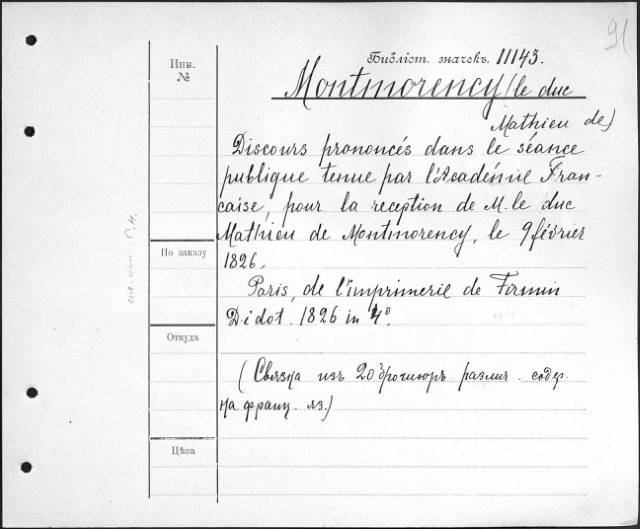 91
Библіот. значекъ. 11143.
Инв.
№
Montmorency (le duc
Mathieu de)
Discours prononcés dans le séance
publique tenue par l'Académie Fran-
caise, pour la reception de M. le duc
Mathieu de Montmorency, le 9 février
1826.
По заказу
Paris, de l'imprimerie de Firmin
Didot. 1826 in 4º.
Откуда
(Связка изъ 20 брошюръ различ. содер.
на франц. яз.)
Цѣна